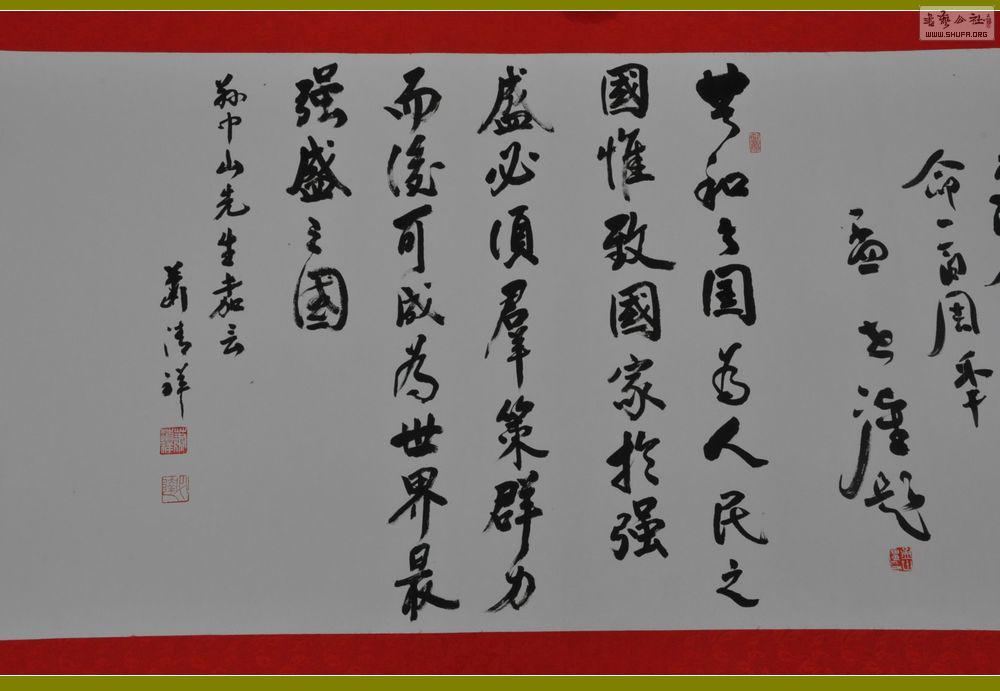 書藝公社
WWW.SHUFA.ORG
命一百周年
題
共和之國為人民之
國惟致國家於强
盛必須羣策群力
而後可成為世界最
强盛之國
孫中山先生嘉云
蕭清祥